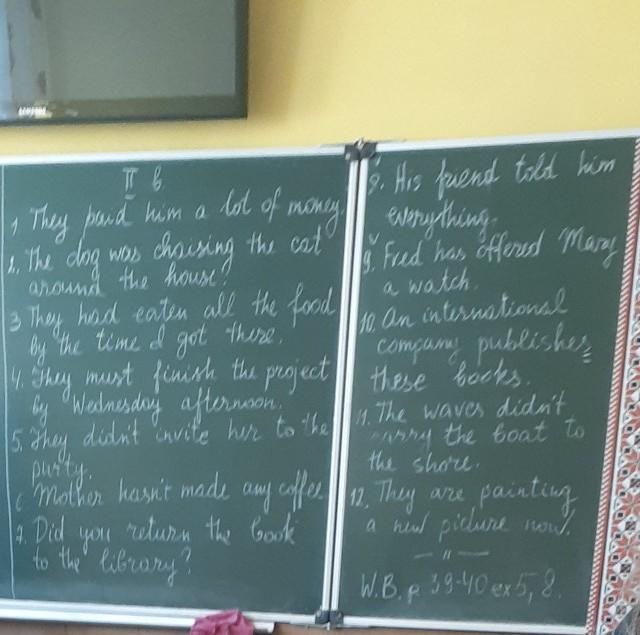 SAMSUNG
II b
1, They paid him a lot of money.
2. The dog was chaising the cat
around the house.
3 They had eaten all the food
by the time I got there.
4. They must finish the project
by Wednesday afternoon.
5. They didn't invite her to the
party.
6 Mother hasn't made any coffee
7. Did you return the book
to the library?
8. His friend told him
everything.
9. Fred has offered Mary
a watch.
10. An international
company publishes
these books.
11. The waves didn't
carry the boat to
the shore.
12. They are painting
a new picture now.
— " —
W.B. p 39-40 ex 5, 8.